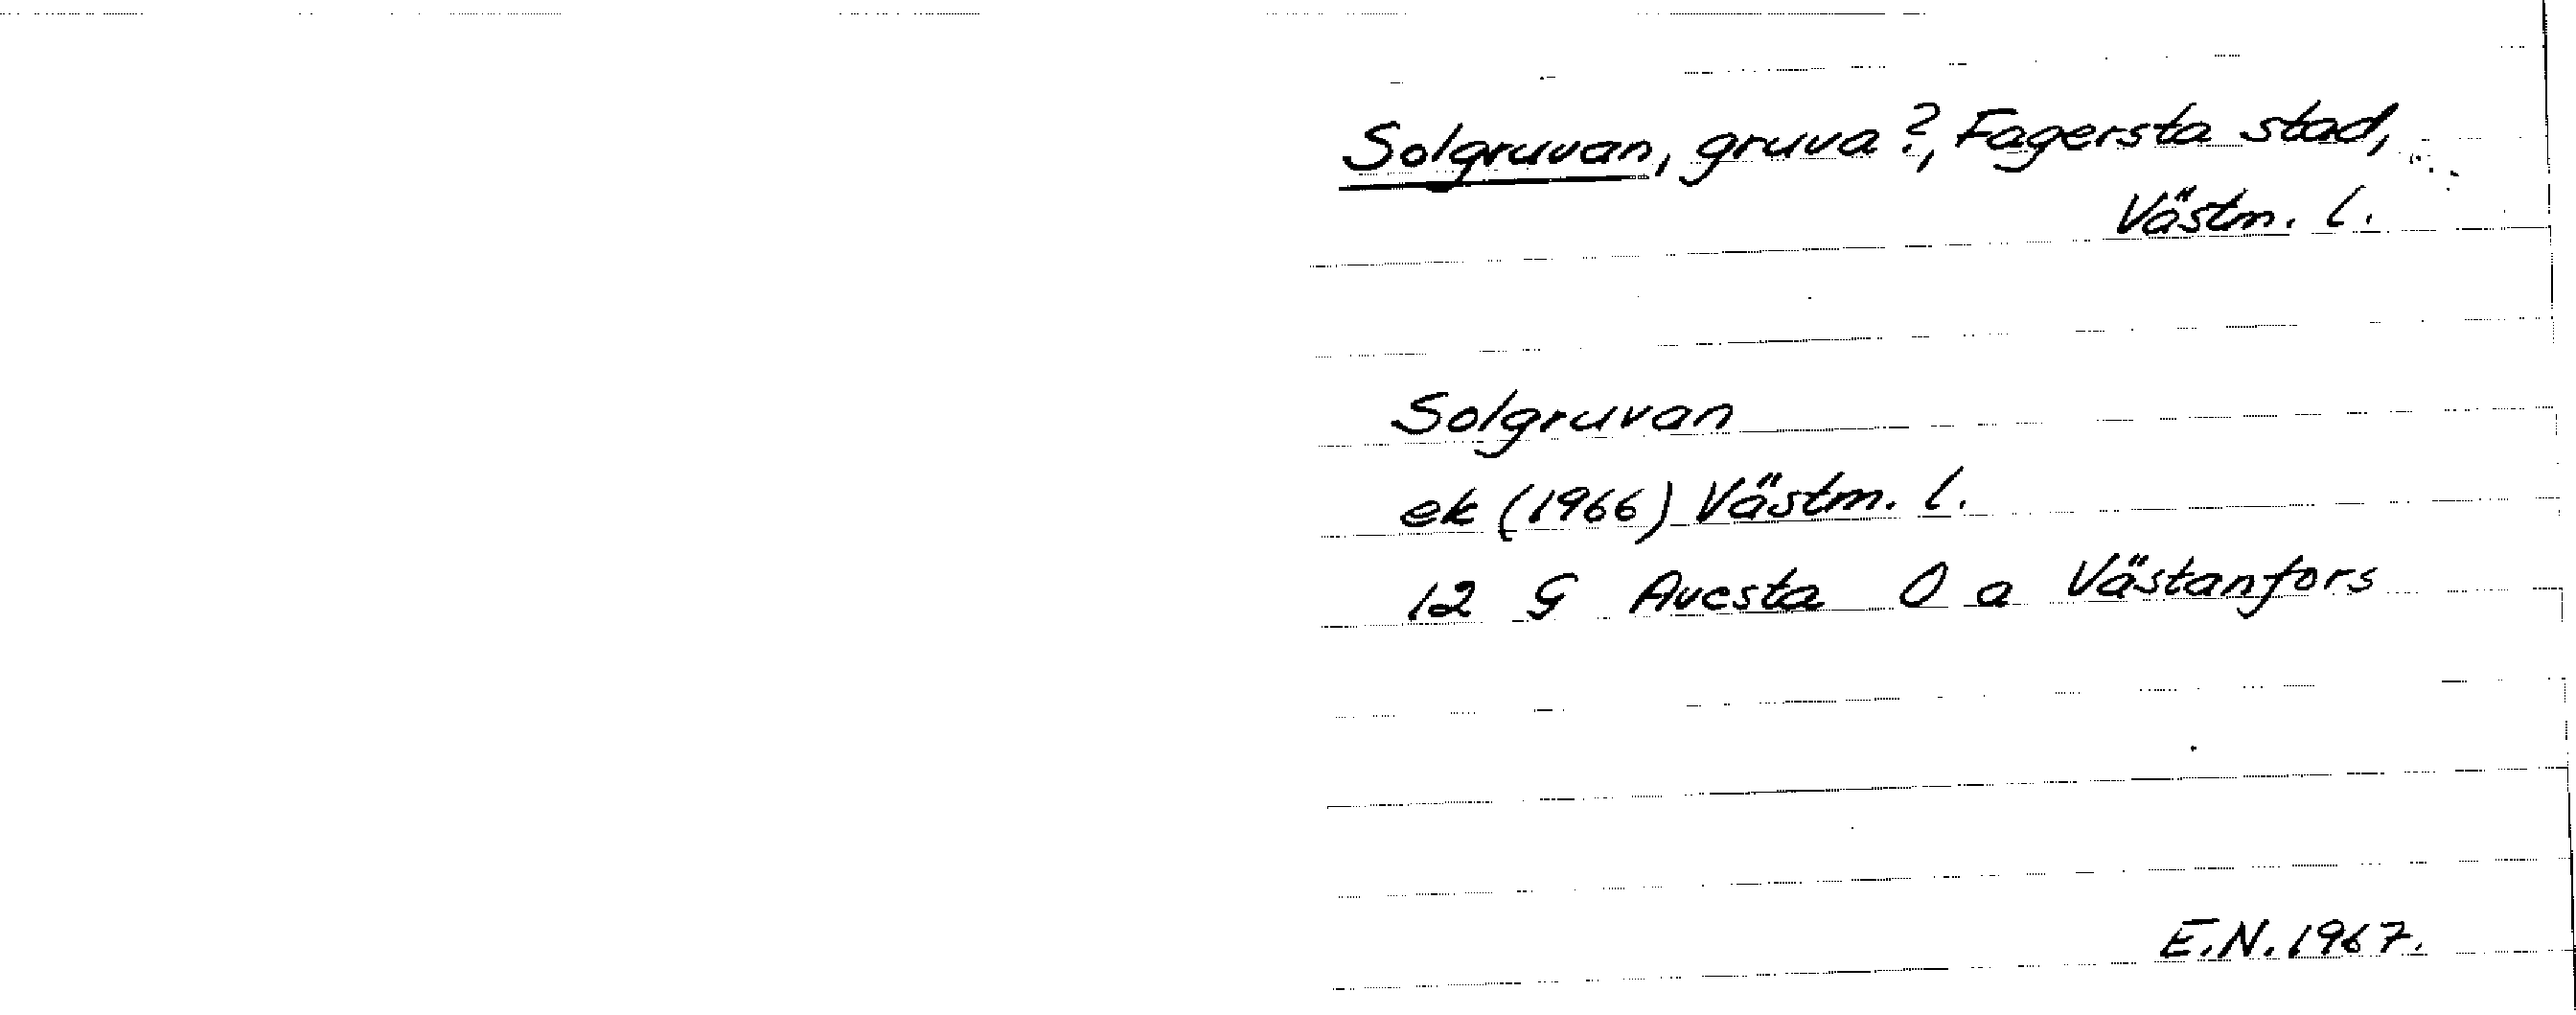 Solgruvan, gruva?, Fagersta stad,
Västm. l.
Solgruvan
ek (1966) Västm. l.
12 G Avesta 0 a Västanfors
E.N. 1967.